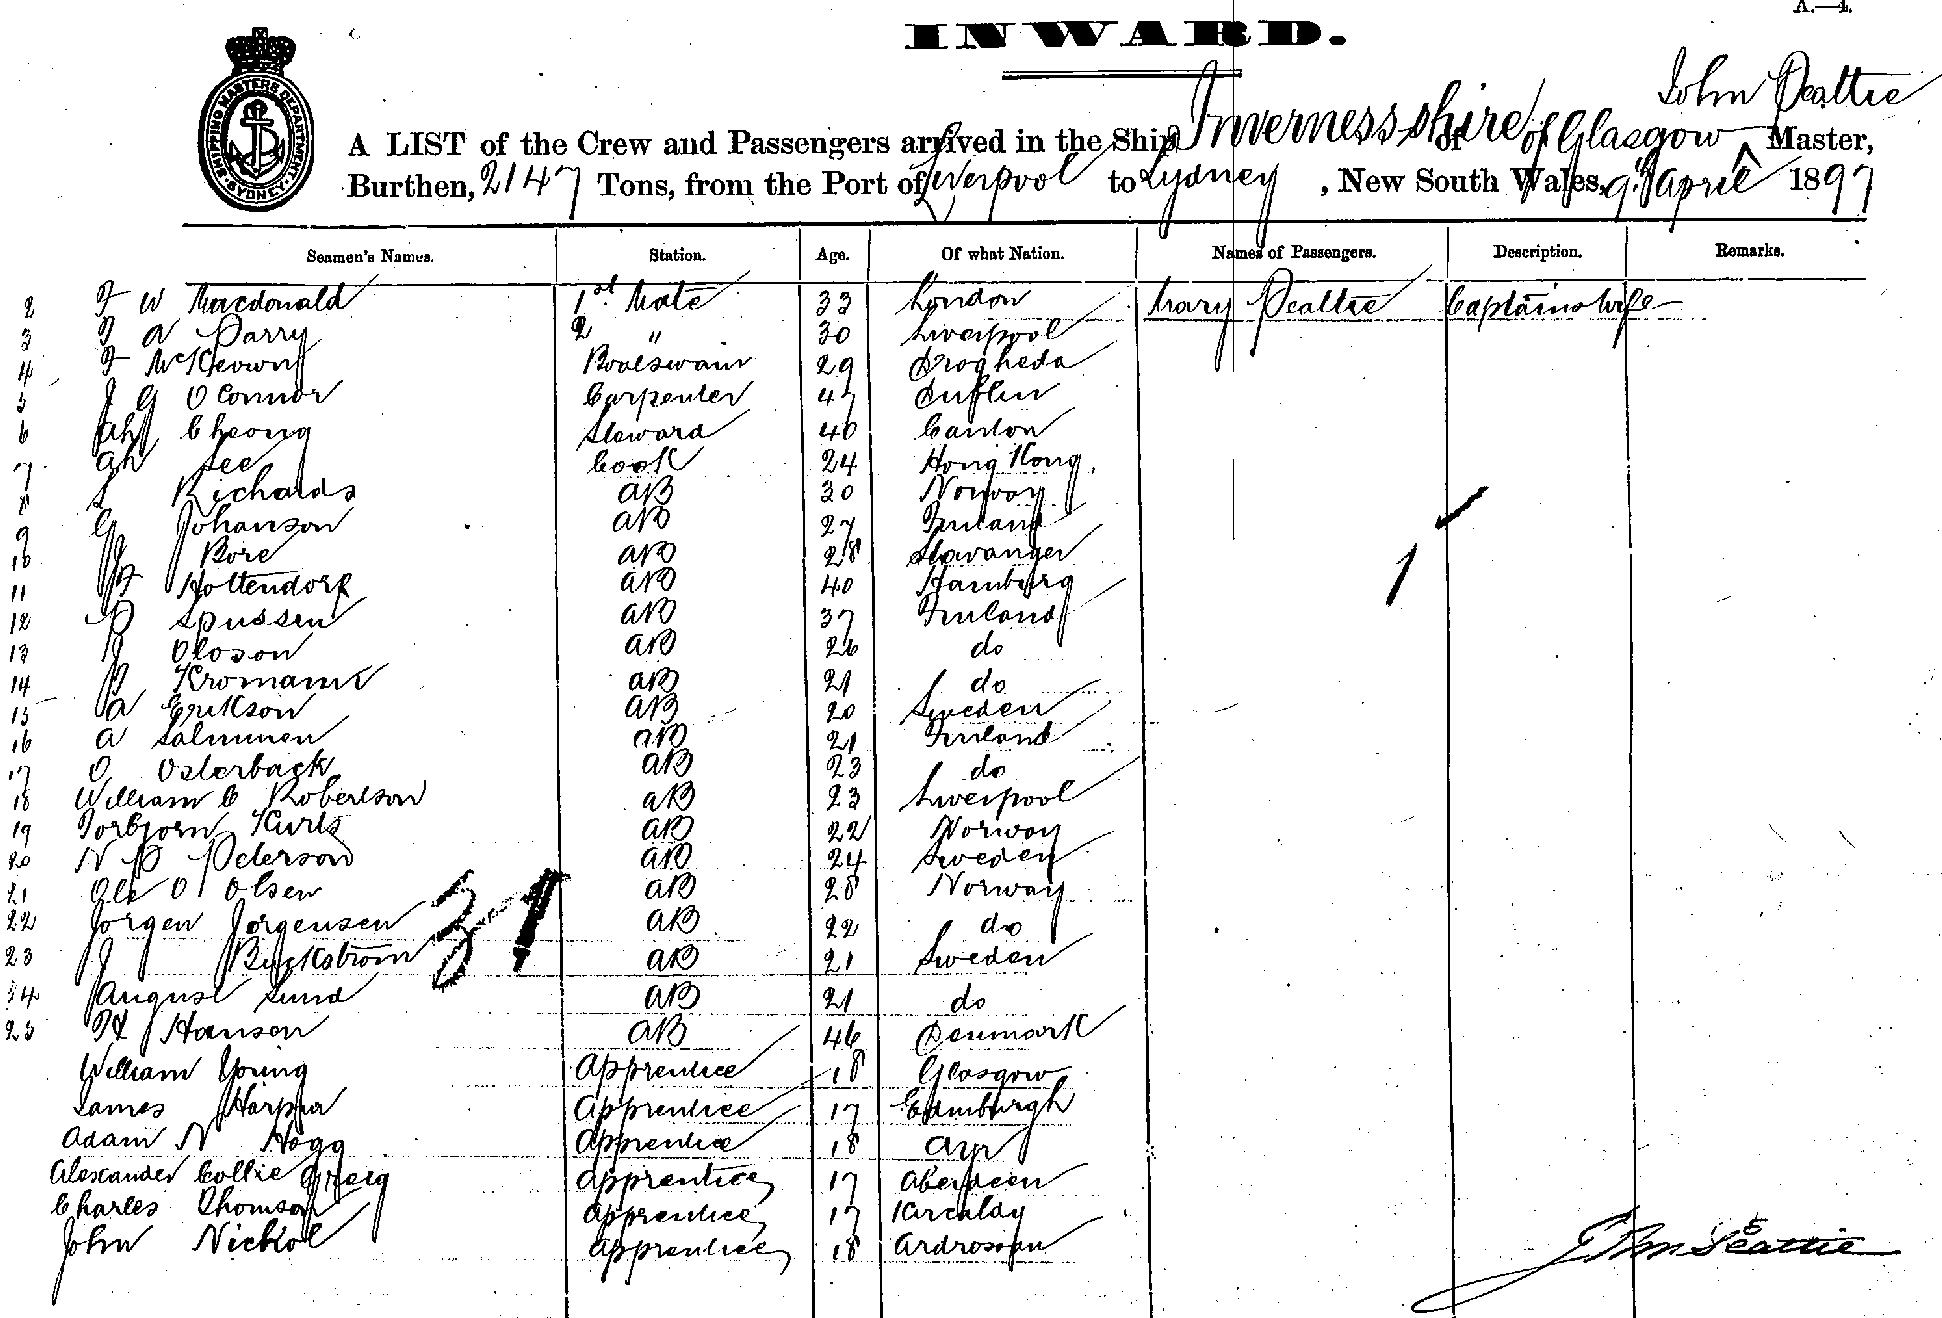 A.—4.
INWARD.
SHIPPING MASTERS DEPARTMENT. SYDNEY.
John Peattie
A LIST of the Crew and Passengers arrived in the Ship Invernessshire of of Glasgow Master,
Burthen, 2147 Tons, from the Port of Liverpool to Sydney, New South Wales, 9 April 1897
Seamen's Names. Station. Age. Of what Nation. Names of Passengers. Description. Remarks.
2 F W Macdonald 1st Mate 33 London Mary Peattie Captains wife
3 A Parry 2 " 30 Liverpool
4 F McKeown Boatswain 29 Drogheda
5 J G O Connor Carpenter 47 Dublin
6 Ah Cheong Steward 40 Canton
7 Ah See Cook 24 Hong Kong.
8 Richards AB 30 Norway
9 Johanson AB 27 Finland
10 Bore AB 28 Stavanger
11 Hottendorf AB 40 Hamburg
12 AB 37 Finland
13 Oloson AB 26 do
14 Kromann AB 21 do
15 A Erikson AB 20 Sweden
16 A Salminen AB 21 Finland
17 O Osterback AB 23 do
18 William C Robertson AB 23 Liverpool
19 Torbjorn Kurtz AB 22 Norway
20 N P Peterson AB 24 Sweden
21 Ole O Olsen AB 28 Norway
22 Jorgen Jorgensen AB 22 do
23 J AB 21 Sweden
24 August Lund AB 21 do
25 H Hanson AB 46 Denmark
31
1
William Young Apprentice 18 Glasgow
James Harper Apprentice 17 Edinburgh
Adam N Hogg Apprentice 18 Ayr
Alexander Collie Greig Apprentice 17 Aberdeen
Charles Thomson Apprentice 17 Kircaldy
John Nickol Apprentice 18 Ardrossan
John Peattie